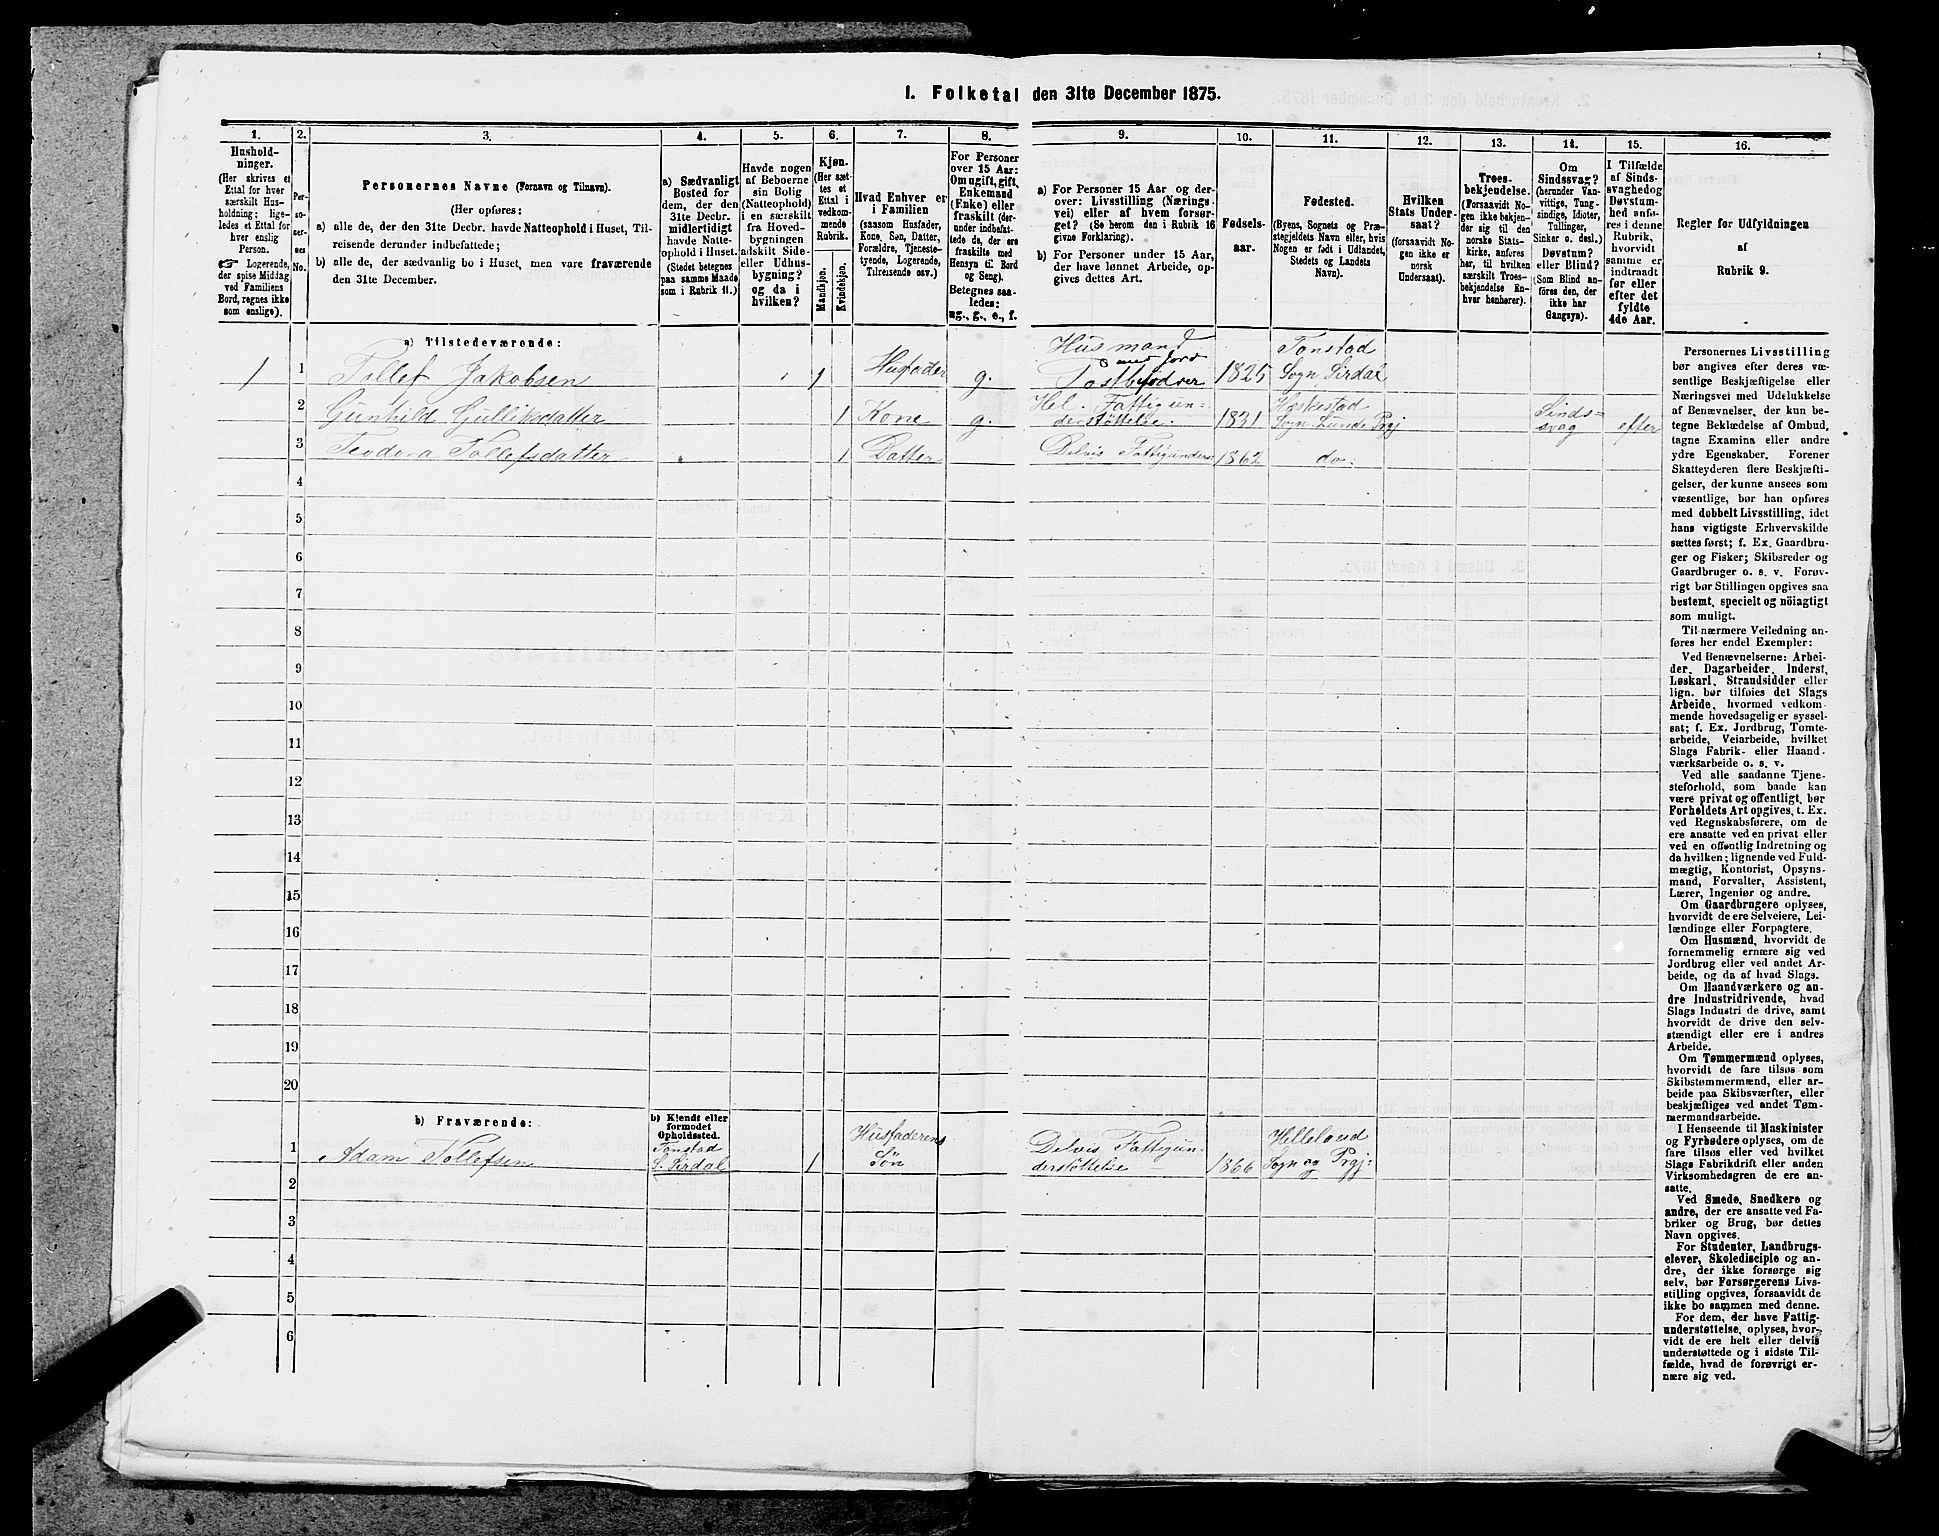 1. Folketal den 31te December 1875.
1. 2. 3. 4. 5. 6. 7. 8. 9. 10. 11. 12. 13. 14. 15. 16.
Hushold-
ninger.
(Her skrives et
Ettal for hver
særskilt Hus-
holdning; lige-
ledes et Ettal for
hver enslig
Person.
☞ Logerende,
der spise Middag
ved Familiens
Bord, regnes ikke
som enslige).
Per-
so-
ner-
nes
No.
Personernes Navne (Fornavn og Tilnavn).
(Her opføres:
a) alle de, der den 31te Decbr. havde Natteophold i Huset, Til-
reisende derunder indbefattede;
b) alle de, der sædvanlig bo i Huset, men vare fraværende
den 31te December.
a) Sædvanligt
Bosted for
dem, der den
31te Decbr.
midlertidigt
havde Natte-
ophold i Huset.
(Stedet betegnes
paa samme Maade
som i Rubrik 11.)
Havde nogen
af Beboerne
sin Bolig
(Natteophold)
i en særskilt
fra Hoved-
bygningen
adskilt Side-
eller Udhus-
bygning?
og da i
hvilken?
Kjøn.
(Her sæt-
tes et
Ettal i
vedkom-
mende
Rubrik.
Mandkjøn.
Kvindekjøn.
Hvad Enhver er
i Familien
(saasom Husfader,
Kone, Søn, Datter,
Forældre, Tjeneste-
tyende, Logerende,
Tilreisende osv.)
For Personer
over 15 Aar:
Om ugift, gift,
Enkemand
(Enke) eller
fraskilt (der-
under indbefat-
tede de, der ere
fraskilte med
Hensyn til Bord
og Seng).
Betegnes saa-
ledes:
ug., g., e., f.
a) For Personer 15 Aar og der-
over: Livsstilling (Nærings-
vei) eller af hvem forsør-
get? (Se herom den i Rubrik 16
givne Forklaring).
b) For Personer under 15 Aar,
der have lønnet Arbeide, op-
gives dettes Art.
Fødsels-
aar.
Fødested.
(Byens, Sognets og Præ-
stegjeldets Navn eller, hvis
Nogen er født i Udlandet,
Stedets og Landets
Navn).
Hvilken
Stats Under-
saat?
(forsaavidt No-
gen ikke er
norsk
Undersaat).
Troes-
bekjendelse.
(Forsaavidt No-
gen ikke bekjen-
der sig til den
norske Stats-
kirke, anføres
her, til hvilken
særskilt Troes-
bekjendelse En-
hver henhører).
Om
Sindssvag?
(herunder Van-
vittige, Tung-
sindige, Idioter,
Tullinger,
Sinker o. desl.)
Døvstum?
eller Blind?
(Som Blind an-
føres den, der
ikke har
Gangsyn).
I Tilfælde
af Sinds-
svaghedog
Døvstum-
hed anfø-
res i denne
Rubrik,
hvorvidt
samme er
indtraadt
før eller
efter det
fyldte
4de Aar.
Regler for Udfyldningen
af
Rubrik 9.
a) Tilstedeværende:
1 1 Tollef Jakobsen 1 Husfader g. Husmand med Jord Postbefodrer 1825 Tonstad Sogn Sirdal
2 Gunhild Gulliksdatter 1 Kone g. Hel. Fattigun-derstøttelse. 1831 Heskestad Sogn Lunde Prgj Sinds=svag efter
3 Teodora Tollefsdatter 1 Datter Delvis Fattigunders: 1862 do.
4
5
6
7
8
9
10
11
12
13
14
15
16
17
18
19
20
b) Fraværende:
b) Kjendt eller
formodet
Opholdssted.
1 Adam Tollefsen Tonstad S. Sirdal 1 Husfaderens Søn Delvis Fattigun-derstøttelse 1866 Helleland Sogn og Prgj:
2
3
4
5
6
Personernes Livsstilling
bør angives efter deres væ-
sentlige Beskjæftigelse eller
Næringsvei med Udelukkelse
af Benævnelser, der kun be-
tegne Beklædelse af Ombud,
tagne Examina eller andre
ydre Egenskaber. Forener
Skatteyderen flere Beskjæfti-
gelser, der kunne ansees som
væsentlige, bør han opføres
med dobbelt Livsstilling, idet
hans vigtigste Erhvervskilde
sættes først; f. Ex. Gaardbru-
ger og Fisker; Skibsreder og
Gaardbruger o. s. v. Forøv-
rigt bør Stillingen opgives saa
bestemt, specielt og nöiagtigt
som muligt.
Til nærmere Veiledning an-
føres her endel Exempler:
Ved Benævnelserne: Arbei-
der, Dagarbeider, Inderst,
Løskarl, Strandsidder eller
lign. bør tilføies det Slags
Arbeide, hvormed vedkom-
mende hovedsagelig er syssel-
sat; f. Ex. Jordbrug, Tomte-
arbeide, Veiarbeide, hvilket
Slags Fabrik- eller Haand-
værksarbeide o. s. v.
Ved alle saadanne Tjene-
steforhold, som baade kan
være privat og offentligt, bør
Forholdets Art opgives, t. Ex.
ved Regnskabsførere, om de
ere ansatte ved en privat eller
ved en offentlig Indretning og
da hvilken; lignende ved Fuld-
mægtig, Kontorist, Opsyns-
mand, Forvalter, Assistent,
Lærer, Ingeniør og andre.
Om Gaardbrugere oplyses,
hvorvidt de ere Selveiere, Lei-
lændinge eller Forpagtere.
Om Husmænd, hvorvidt de
fornemmelig ernære sig ved
Jordbrug eller ved andet Ar-
beide, og da af hvad Slags.
Om Haandværkere og an-
dre Industridrivende, hvad
Slags Industri de drive, samt
hvorvidt de drive den selv-
stændigt eller ere i andres
Arbeide.
Om Tømmermænd oplyses,
hvorvidt de fare tilsøs som
Skibstømmermænd, eller ar-
beide paa Skibsværfter, eller
beskjæftiges ved andet Tøm-
mermandsarbeide.
I Henseende til Maskinister
og Fyrbødere oplyses, om de
fare tilsøs eller ved hvilket
Slags Fabrikdrift eller anden
Virksomhedsgren de ere an-
satte.
Ved Smede, Snedkere og
andre, der ere ansatte ved Fa-
briker og Brug, bør dettes
Navn opgives.
For Studenter, Landbrugs-
elever, Skoledisciple og an-
dre, der ikke forsørge sig
selv, bør Forsørgerens Livs-
stilling opgives, forsaavidt de
ikke bo sammen med denne.
For dem, der have Fattig-
understøttelse, oplyses, hvor-
vidt de ere helt eller delvis
understøttede og i sidste Til-
fælde, hvad de forøvrigt er-
nære sig ved.